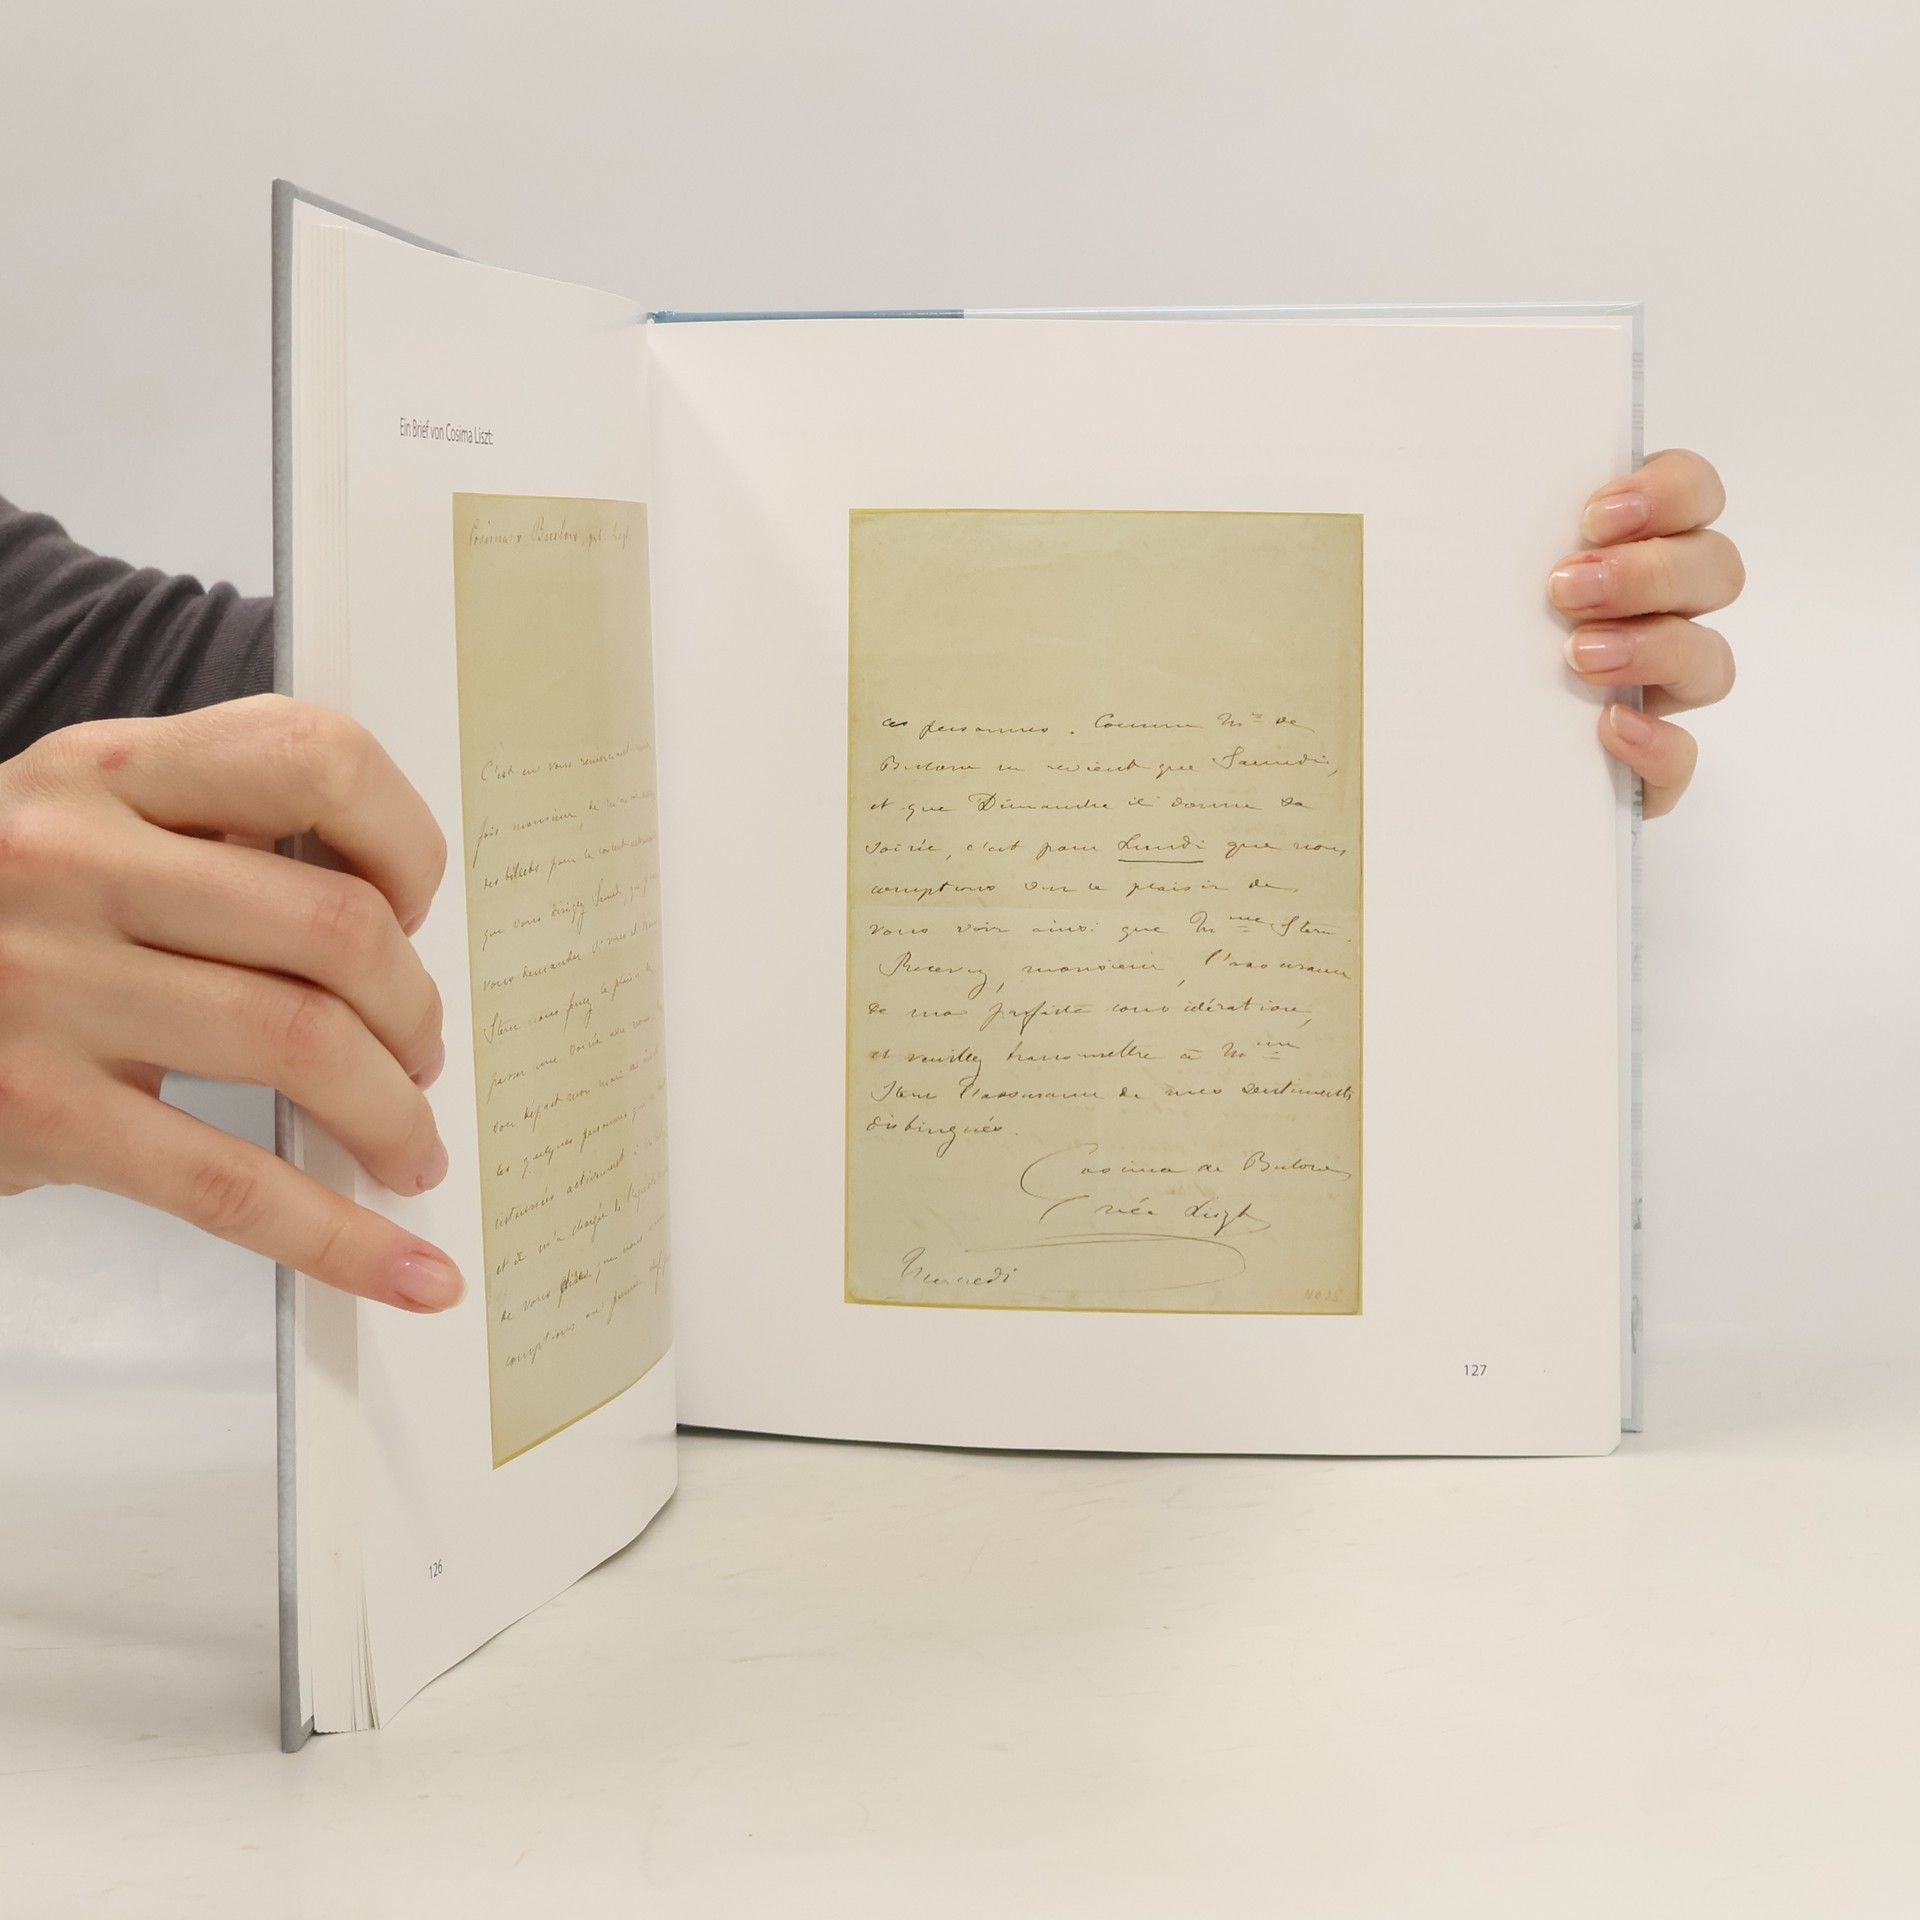 Ein Brief von Cosima Liszt:
Cosima v Buelow, geb. Liszt
C'est en vous remerciant
fois monsieur, de
des billets pour le concert
que vous dirigez Samedi,
vous demander si vous et
Stern nous ferez le plaisir
passer une soirée
son départ mon mari
les quelques personnes que
intéressées activement
et il m'a chargée
de vous dire que nous
comptions
126
ces personnes. Comme Mr de
Bulow ne revient que Samedi,
et que Dimanche il donne sa
soirée, c'est pour Lundi que nous
comptons sur le plaisir de
vous voir ainsi que Mme Stern.
Recevez, monsieur, l'assurance
de ma parfaite considération,
et veuillez transmettre à Mme
Stern l'assurance de mes sentiments
distingués.
Cosima de Bulow
née Liszt
Mercredi
127